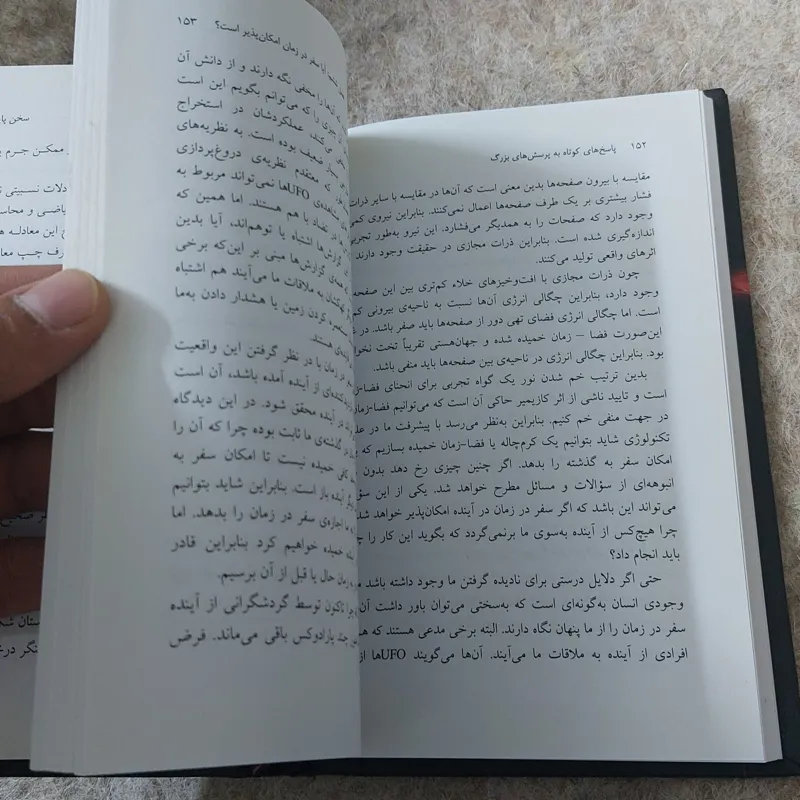 ۱۵۲ پاسخ‌های کوتاه به پرسش‌های بزرگ
مقایسه با بیرون صفحه‌ها بدین معنی است که آن‌ها در مقایسه با سایر ذرات
فشار بیشتری بر یک طرف صفحه‌ها اعمال نمی‌کنند. بنابراین نیروی کمی
وجود دارد که صفحات را به همدیگر می‌فشارد. این نیرو به‌طور تجربی
اندازه‌گیری شده است. بنابراین ذرات مجازی در حقیقت وجود دارند
اثرهای واقعی تولید می‌کنند.
چون ذرات مجازی یا افت‌وخیزهای خلاء کم‌تری بین این صفحه
وجود دارد، بنابراین چگالی انرژی آن‌ها نسبت به ناحیه‌ی بیرونی کم
است. اما چگالی انرژی فضای تهی دور از صفحه‌ها باید صفر باشد. در غ
این‌صورت فضا – زمان خمیده شده و جهان‌هستی تقریباً تخت نخوا
بود. بنابراین چگالی انرژی در ناحیه‌ی بین صفحه‌ها باید منفی باشد.
بدین ترتیب خم شدن نور یک گواه تجربی برای انحنای فضا-ز
است و تایید ناشی از اثر کازیمیر حاکی آن است که می‌توانیم فضا-زمان
در جهت منفی خم کنیم. بنابراین به‌نظر می‌رسد با پیشرفت ما در عل
تکنولوژی شاید بتوانیم یک کرم‌چاله یا فضا-زمان خمیده بسازیم که ب
امکان سفر به گذشته را بدهد. اگر چنین چیزی رخ دهد بدون
انبوهه‌ای از سؤالات و مسائل مطرح خواهد شد. یکی از این سؤ
می‌تواند این باشد که اگر سفر در زمان در آینده امکان‌پذیر خواهد شد
چرا هیچ‌کس از آینده به‌سوی ما برنمی‌گردد که بگوید این کار را چ
باید انجام داد؟
حتی اگر دلایل درستی برای نادیده گرفتن ما وجود داشته باشد م
وجودی انسان به‌گونه‌ای است که به‌سختی می‌توان باور داشت آن
سفر در زمان را از ما پنهان نگاه دارند. البته برخی مدعی هستند که ه
افرادی از آینده به ملاقات ما می‌آیند. آن‌ها می‌گویند UFOها از
آیا سفر در زمان امکان‌پذیر است؟ ۱۵۳
آن‌ها را مخفی نگه دارند و از دانش آن
چیزی را که می‌توانم بگویم این است
می‌کنند، عملکردشان در استخراج
بسیار ضعیف بوده است. به نظریه‌های
که معتقدم نظریه‌ی دروغ‌پردازی
مشاهده‌ی UFOها نمی‌تواند مربوط به
در تضاد با هم هستند. اما همین که
گزارش‌ها اشتباه یا توهم‌اند، آیا بدین
همه‌ی گزارش‌ها مبنی بر این‌که برخی
به ملاقات ما می‌آیند هم اشتباه
مستعمره کردن زمین یا هشدار دادن به‌ما
هستند.
در زمان با در نظر گرفتن این واقعیت
از آینده آمده باشد، آن است
در آینده محقق شود. در این دیدگاه
در گذشته‌ی ما ثابت بوده چرا که آن را
کافی خمیده نیست تا امکان سفر به
آینده باز است. بنابراین شاید بتوانیم
اجازه‌ی سفر در زمان را بدهد. اما
خمیده خواهیم کرد بنابراین قادر
به زمان حال یا قبل از آن برسیم.
چرا تاکنون توسط گردشگرانی از آینده
چند پارادوکس باقی می‌ماند. فرض
سخن پا
ممکن جرم
دلات نسبیتی
یاضی و محاس
این معادله ه
رف چپ معا